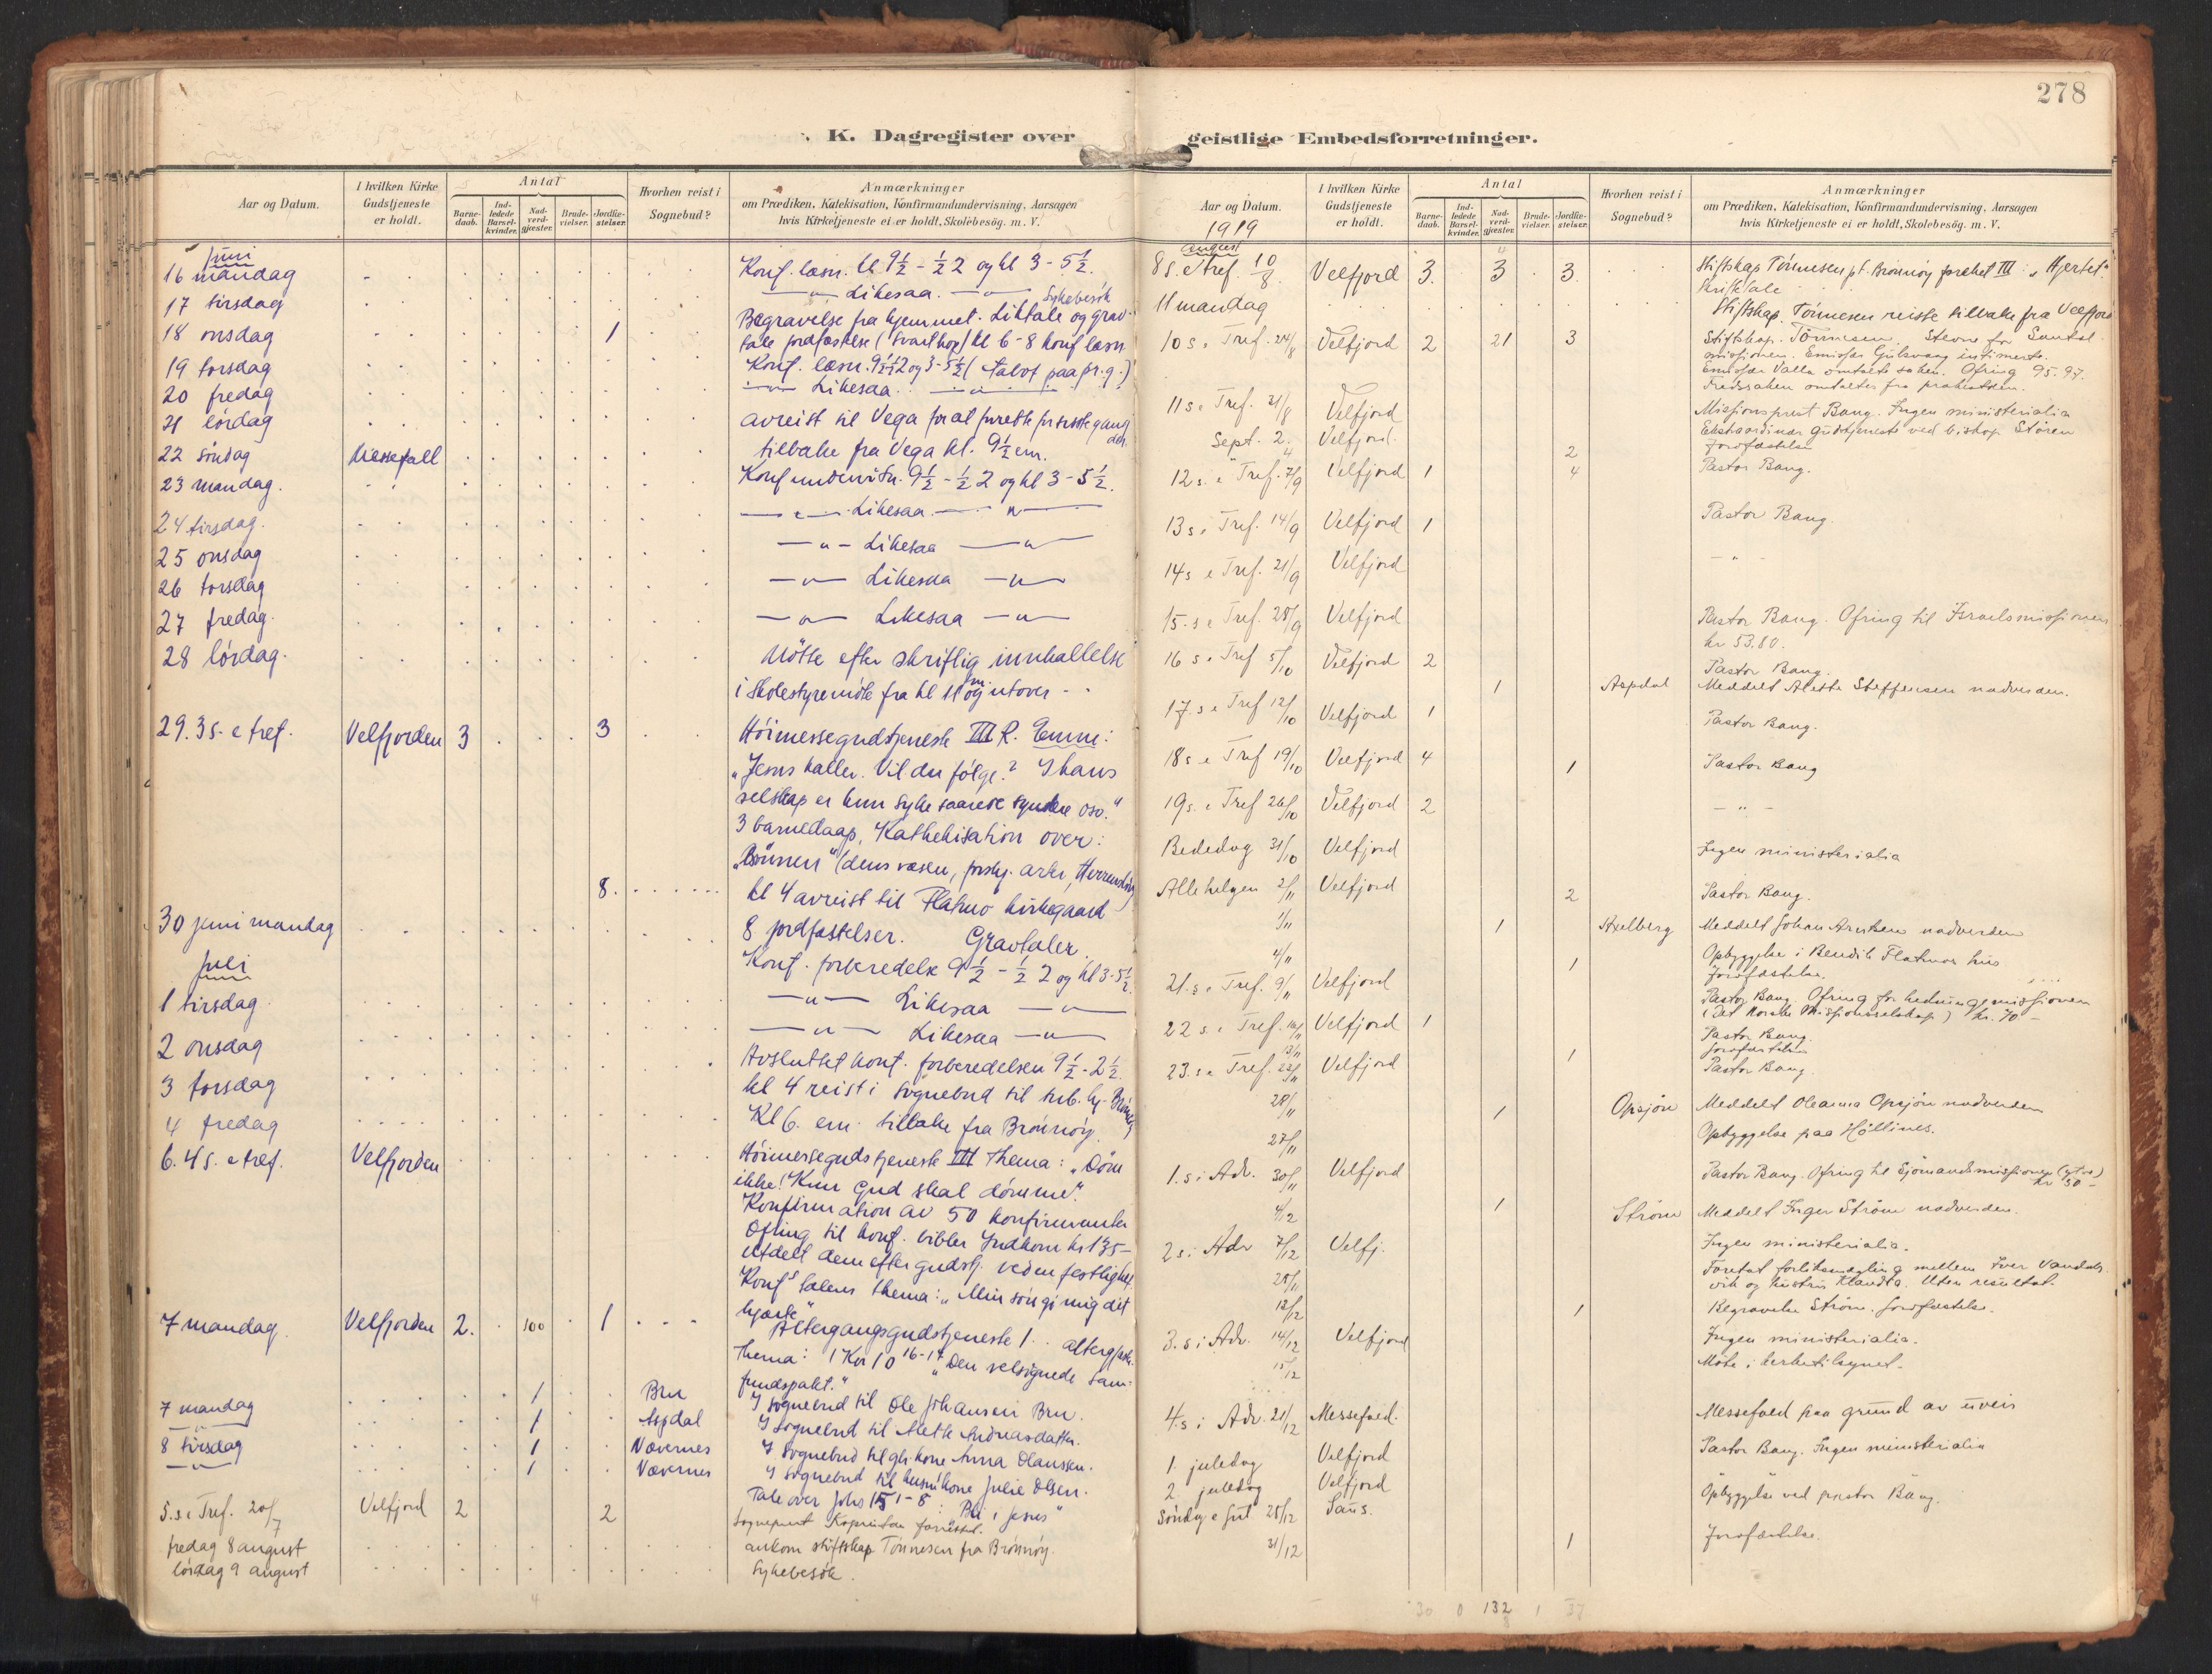 278
K. Dagregister over geistlige Embedsforretninger.
Aar og Datum.
I hvilken Kirke Gudstjeneste er holdt.
Antal
Barnedaab.
Indledede Barselkvinder.
Nadverdgjæster.
Brudevielser.
Jordfæstelser.
Hvorhen reist i Sognebud?
Anmærkninger
om Prædiken, Katekisation, Konfirmandundervisning, Aarsagen
hvis Kirketjeneste ei er holdt, Skolebesøg. m. V.
Juni
16 mandag Konf. læsn. kl 9½ - ½2 og kl 3 - 5½.
17 tirsdag Likesaa. Sykebesök
18 onsdag 1 Begravelse fra hjemmet. Liktale og grav-
tale jordfæstelse kl 6-8 konf læsn
19 torsdag Konf. læsn. 9½-½2 og 3-5½
20 fredag Likesaa.
21 lördag avreist til Vega for at
22 söndag Messefall tilbake fra Vega kl. 9½ em.
23 mandag. Konf undervisn. 9½ - ½2 og kl 3 - 5½.
24 tirsdag. Likesaa
25 onsdag Likesaa
26 torsdag Likesaa
27 fredag. Likesaa
28 lördag. Mötte efter skriftlig innkallelse
i Skolestyremöte fra kl 11 og utover
29. 3 s. e tref. Velfjorden 3 3 Höimessegudstjeneste III R. Emne:
"Jesus kaller. Vil du fölge? I hans
selskap er kun syke saarede syndere oso."
3 barnedaap, Kathekisation over:
"Bönnen"
8. kl 4 avreist til Flatmo kirkegaard
30 juni mandag 8 jordfæstelser. Gravtaler.
Konf. forberedelse 9½ - ½2 og kl 3-5½
Juli
1 tirsdag. Likesaa
2 onsdag Likesaa
3 torsdag Avsluttet konf. forberedelsen 9½ - 2½.
kl 4 reist i sognebud til
4 fredag Kl 6. em. tilbake fra Brönnöy.
6. 4 s. e tref. Velfjorden Höimessegudstjeneste III Thema: "Döm
ikke! Kun Gud skal dömme".
Konfirmation av 50 konfirmanter
Ofring til konf. bibler Indkom kr 135-
utdelt dem efter gudstj. ved en festlighet.
Konfs talens thema: "Min sön gi mig dit
hjærte"
7 mandag. Velfjorden 2. 100 1 Altergangsgudstjeneste
Thema: 1 Kor 10 16-17 "Den velsignede Sam-
fundspakt."
7 mandag 1 Bru I sognebud til Ole Johansen Bru.
1 Aspdal I sognebud til Alette Andreasdatter.
8 tirsdag 1 Nævernes I sognebud til gl. kone Anna Olaussen.
1 Nævernes I sognebud til husm.kone Julie Olsen.
Tale over Johs 15 1-8: "Bli i Jesus"
5. s. e Tref. 20/7 Velfjord 2 2
fredag 8 august ankom stiftskap Tönnesen fra Brönnöy.
lördag 9 august Sykebesök.
Aar og Datum.
I hvilken Kirke Gudstjeneste er holdt.
Antal
Barnedaab.
Indledede Barselkvinder.
Nadverdgjæster.
Brudevielser.
Jordfæstelser.
Hvorhen reist i Sognebud?
Anmærkninger
om Prædiken, Katekisation, Konfirmandundervisning, Aarsagen
hvis Kirketjeneste ei er holdt, Skolebesøg. m. V.
1919
august
8 s. e tref. 10/8 Velfjord 3. 3 3. Stiftskap Tönnesen pt. Brönnöy præket III: "Hjertet".
Skriftetale
11 mandag Stiftskap. Tönnesen reiste tilbake fra Velfjord
10 s. e Tref. 24/8 Velfjord 2 21 3 Stiftskap. Tönnesen. Stevne for Santal
missionen. Emissær Gulsvaag intimerte.
Emissær Valla omtalte saken. Ofring 95.97.
Fredssaken omtaltes fra prækestolen.
11 s. e Tref. 31/8 Velfjord Missionsprest Bang. Ingen ministerialia
Sept. 2. Velfjord. Ekstraordinær gudstjeneste ved biskop Stören
4 2 Jordfæstelse
12 s. e Tref. 7/9 Velfjord 1 4 Pastor Bang.
13 s. e Tref. 14/9 Velfjord 1 Pastor Bang.
14 s e Tref. 21/9 Velfjord - " -
15. s e Tref. 28/9 Velfjord Pastor Bang. Ofring til Israelsmissionen
kr 53.80.
16 s. e Tref 5/10 Velfjord 2 Pastor Bang.
1 Aspdal Meddelt Alette Steffensen nadverden.
17. s e Tref 12/10 Velfjord 1 Pastor Bang.
18 s e Tref 19/10 Velfjord 4 1 Pastor Bang
19 s. e Tref 26/10 Velfjord 2 - " -
Bededag 31/10 Velfjord Ingen ministerialia
Allehelgen 2/11 Velfjord 2 Pastor Bang.
1/11 1 Meddelt Johan nadverden
4/11 1 Opbyggelse i Bendik Flatmos hus
Jordfæstelse.
21. s. e Tref. 9/11 Velfjord Pastor Bang. Ofring for hedningemissionen
(Det Norske Missionsselskap) kr. 70.-
22 s. e Tref. 16/11 Velfjord 1 Pastor Bang.
13/11 1 Jordfæstelse
23. s e Tref. 23/11 Velfjord Pastor Bang.
28/11 1 Opsjön Meddelt Oleanna Opsjön nadverden
27/11 Opbyggelse paa Höllines.
1. s i Adv. 30/11 Velfjord Pastor Bang. Ofring til Sjömandsmissionen kr 50-
4/12 1 Ström Meddelt Inger Ström nadverden.
2 s. i Adv 7/12 Velfj. Ingen ministerialia.
25/11 Foretat forliksmægling mellem Iver Vandals-
vik og hustru Klaudta. Uten resultat.
12/12 1 Begravelse Ström. Jordfæstelse.
3. s i Adv. 14/12 Velfjord Ingen ministerialia.
15/12 Möte i herbetilsynet.
4 s i Adv. 21/12 Messefald. Messefald paa grund av uveir
1 juledag Velfjord Pastor Bang. Ingen ministerialia
2. juledag Velfjord Opbyggelse ved pastor Bang.
Söndag e Jul 28/12 Saus.
31/12 1 Jordfæstelse.
30 0 132 1 37